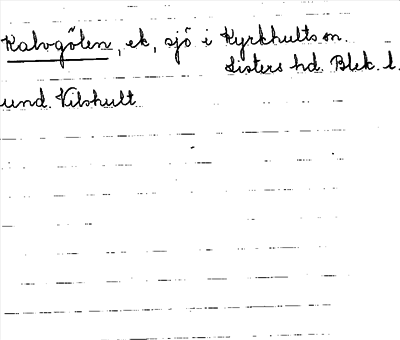 Kalvgölen, ek, sjö i Kyrkhults sn.
Listers hd. Blek. l.
und. Vilshult